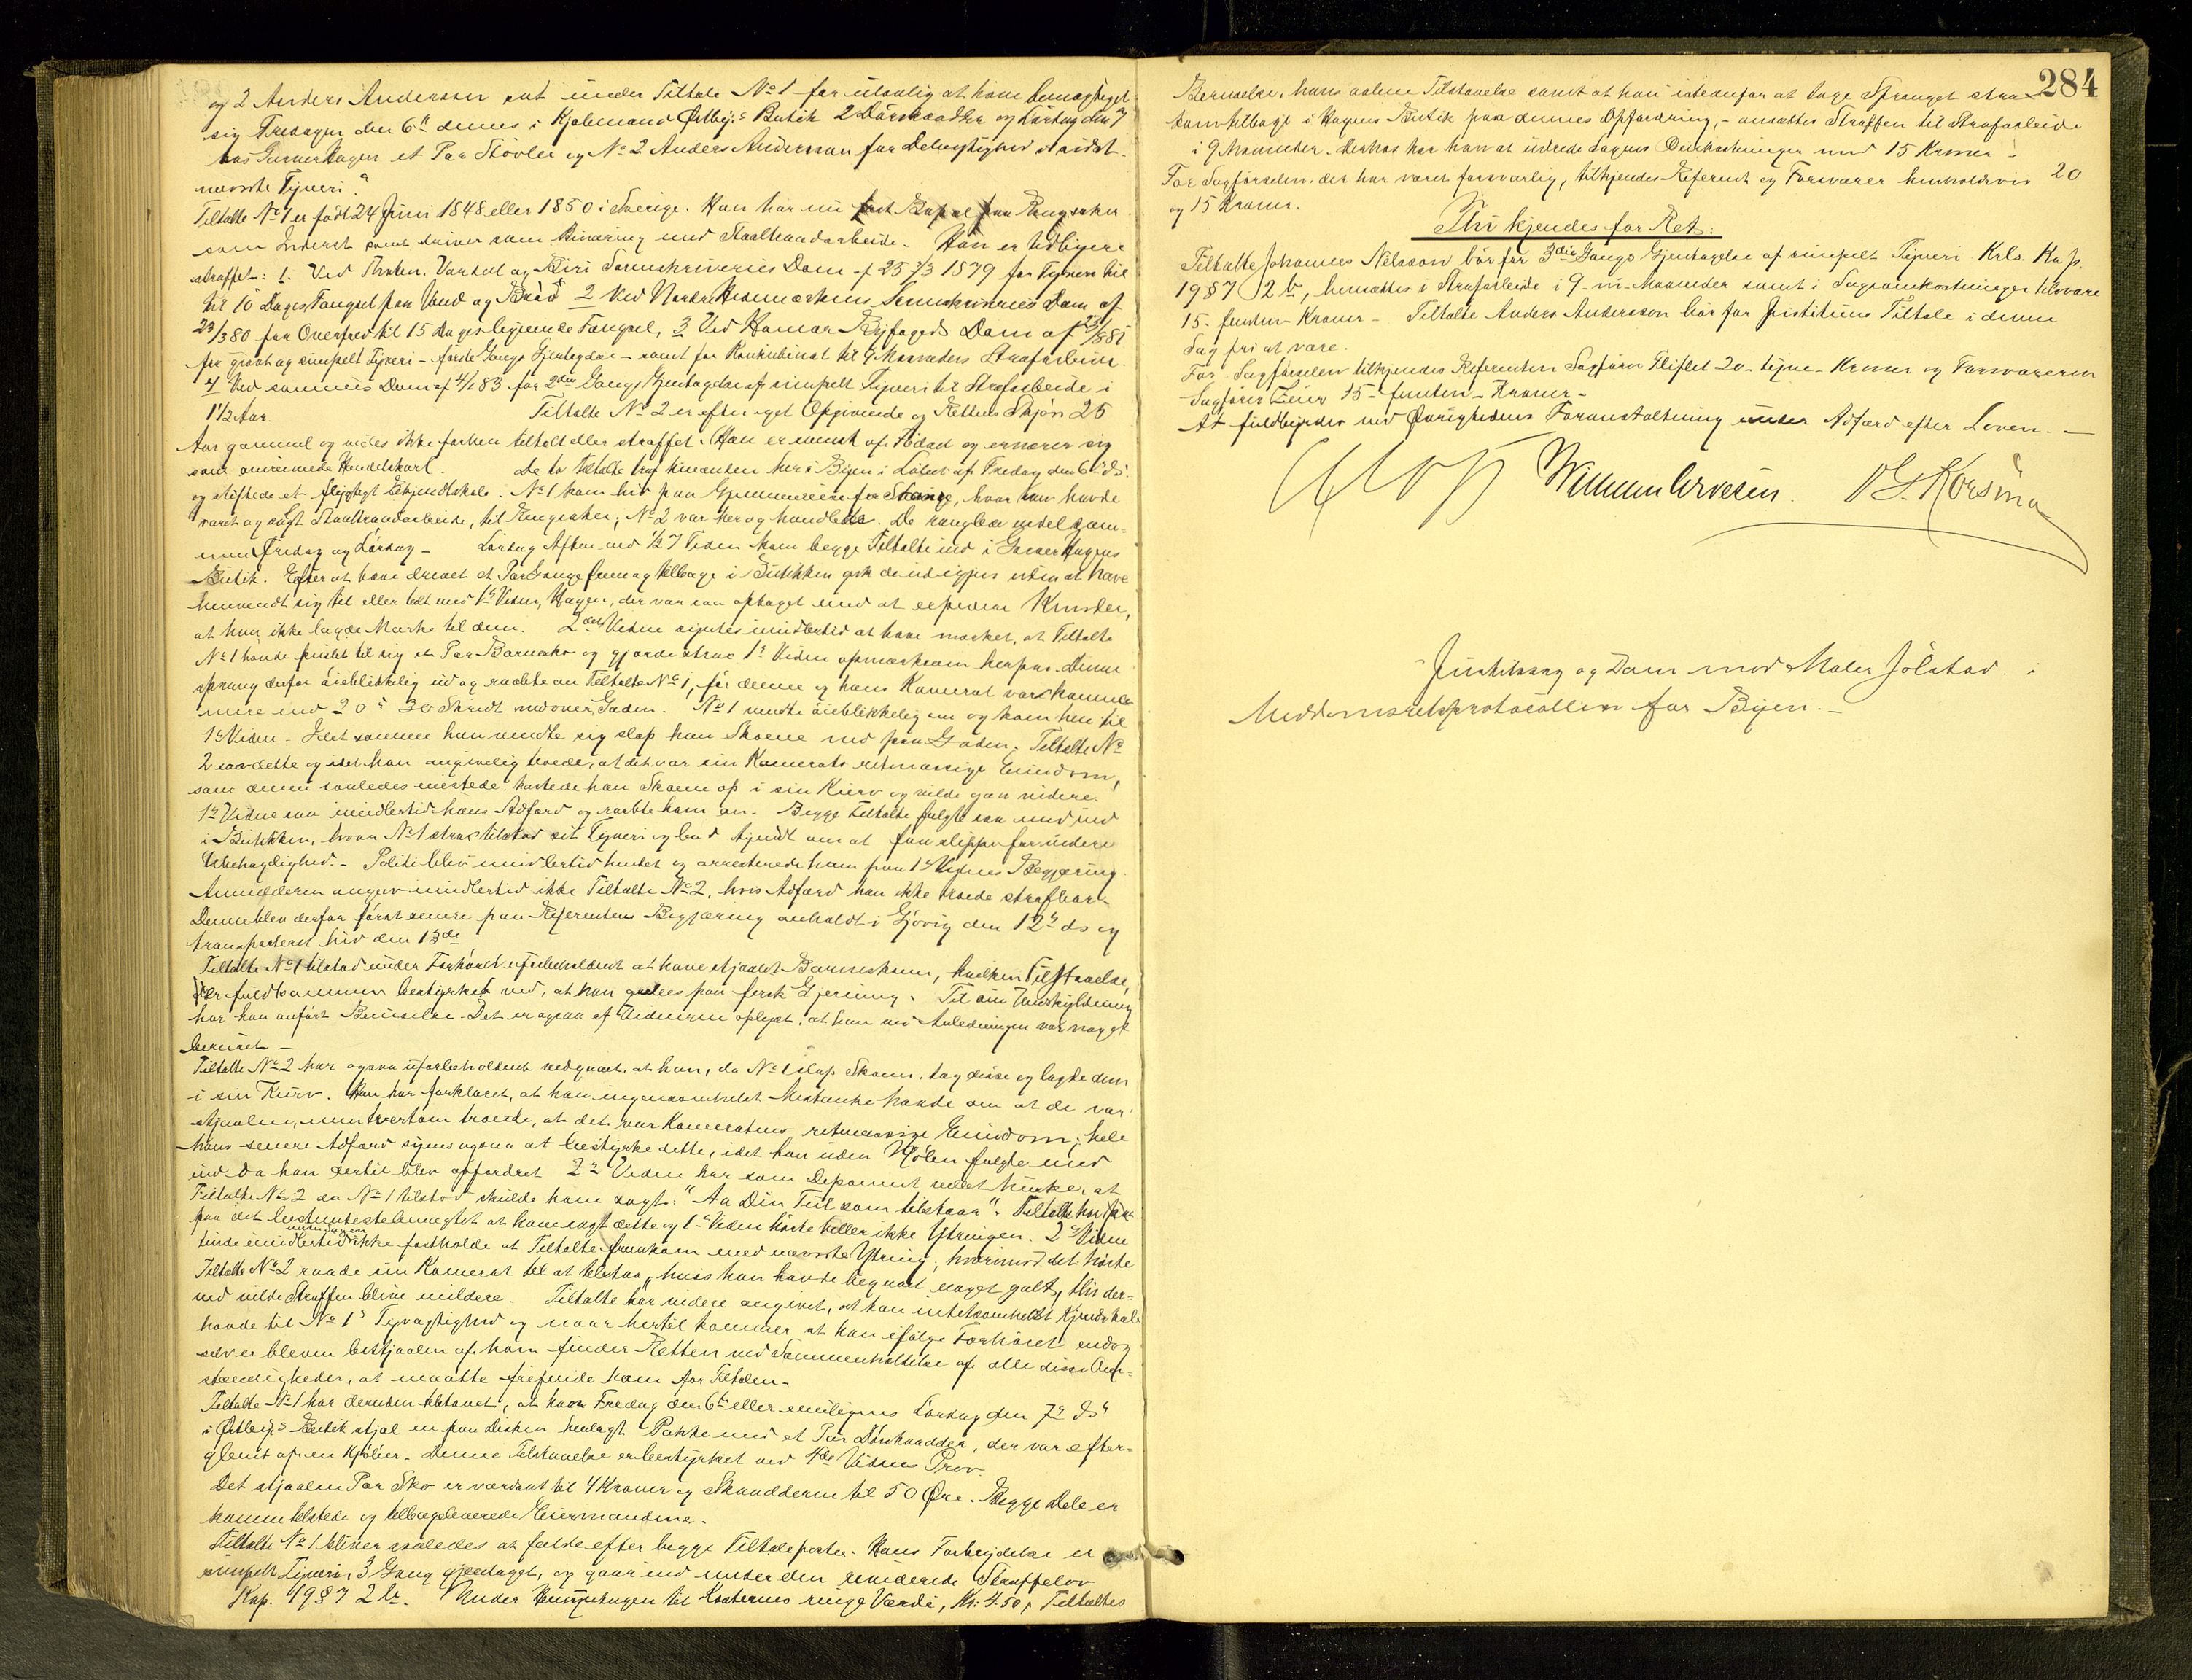 og 2 Anders Andersson sat under Tiltale No 1 for ulovlig at have bemægtiget
sig Fredagen den 6te dennes i Kjøbmand Østbyes Butik 2 Dørskaadder og Lørdag den 7
hos Garver Hagen et Par Støvler og No 2 Anders Andersson for Delagtighed i sidst-
nævnte Tyveri."
Tiltalte No 1 er født 24 Juni 1848 eller 1850 i Sverige. Han har nu fast Bopæl paa Ringsaker
som Inderst samt driver som Binæring med Staaltraadarbeide. Han er tidligere
straffet: 1. Ved Thoten, Vardal og Biri Sorenskriveries Dom af 25/3 1879 for Tyveri til
til 10 Dages Fængsel paa Vand og Brød 2 Ved Nordre Hedemarkens Sorenskriveries Dom af
23/3 80 for Overfald til 15 Dages lignende Fængsel, 3 Ved Hamar Byfogeds Dom af 23/881
for grovt og simpelt Tyveri - første Gangs Gjentagelse - samt for Konkubinat til 9 Maaneders Strafarbeide.
4 Ved sammes Dom af 4/1 83 for 2den Gangs Gjentagelse af simpelt Tyveri til Strafarbeide i
1 1/2 Aar. Tiltalte No 2 er efter eget Opgivende og Rettens Skjøn 25
Aar gammel og vides ikke forhen tiltalt eller straffet. Han er svensk af Fødsel og ernærer sig
som omreisende Handelskarl. De to Tiltalte traf hinanden her i Byen i Løbet af Fredag den 6te ds
og stiftede et flygtigt Bekjendtskab. No 1 kom hid paa Gjennemreise fra Stange, hvor han havde
været og solgt Staaltraadarbeide, til Ringsaker; No 2 var her og handlede. De ranglede endel sam-
men Fredag og Lørdag - Lørdag Aften ved 1/2 7 Tiden kom begge Tiltalte ind i Garver Hagens
Butik. Efter at have drevet et Par Gange frem og tilbage i Butikken gik de ud igjen uden at have
henvendt sig til eller talt med 1te Vidne, Hagen, der var saa optaget med at expedere Kunder,
at han ikke lagde Mærke til dem. 2det Vidne imidlertid at have mærket, at Tiltalte
No 1 havde til sig et Par Barnesko og gjorde strax 1te Vidne opmærksom herpaa. Denne
sprang derfor øieblikkelig ud og raabte an Tiltalte No 1, før denne og hans Kamerat vare komne
mere end 20 à 30 Skridt nedover Gaden. No 1 vendte øieblikkelig om og kom hen til
1te Vidne - Idet samme han vendte sig slap han Skoene ned paa Gaden. Tiltalte No
2 saa dette og idet han angivelig troede, at det var sin Kamerats retmæssige Eiendom,
som denne saaledes mistede, kastede han Skoene op i sin Kurv og vilde gaa videre.
1te Vidne saa imidlertid hans Adfærd og raabte ham an. Begge Tiltalte fulgte saa med ind
i Butikken, hvor No 1 strax tilstod sit Tyveri og bad tyndt om at faa slippe for videre
Ubehagelighed. - Politi blev imidlertid hentet og arresterede ham paa 1te Vidnes Begjæring.
Anmelderen angav imidlertid ikke Tiltalte No 2, hvis Adfærd han ikke troede strafbar.
Denne blev derfor først senere paa Referentens Begjæring anholdt i Gjøvig den 12te ds og
transporteret hid den 13de
Tiltalte No 1 tilstod under Forhøret uforbeholdent at have stjaalet Barneskoene, hvilken Tilstaaelse,
er fuldkommen bestyrket ved, at han grebes paa fersk Gjerning. Til sin Undskyldning
har han anført Beruselse. Det er ogsaa af Vidnerne oplyst, at han ved Anledningen var noget
beruset -
Tiltalte No 2 har ogsaa uforbeholdent vedgaaet, at han, da No 1 slap Skoene, tog disse og lagde dem
i sin Kurv. Han har forklaret, at han ingensomhelst Mistanke havde om at de var
stjaalne, men tvertom troede, at det var Kameratens retmæssige Eiendom; hele
hans senere Adfærd synes ogsaa at bestyrke dette, idet han uden Nølen fulgte med
ind da han dertil blev opfordret 2det Vidne har som Deponent villet huske, at
Tiltalte No 2 da No 1 tilstod skulde have sagt: "Aa Din Tull som tilstaar". Tiltalte har
paa det bestemteste benægtet at have sagt dette og 1te Vidne hørte heller ikke Ytringen. 2det Vidne
turde imidlertid under Sagen ikke fastholde at Tiltalte fremkom med nævnte Ytring; hvorimod det hørte
Tiltalte No 2 raade sin Kamerat til at tilstaa, hvis han havde begaaet noget galt, thi der-
ved vilde Straffen blive mildere. Tiltalte har videre angivet, at han intetsomhelst Kjendskab
havde til No 1s Tyvagtighed og naar hertil kommer at han ifølge Forhøret endog
selv er bleven bestjaalen af ham finder Retten ved Sammenholdelse af alle disse Om-
stændigheder, at maatte frifinde ham for Tiltalen.
Tiltalte No 1 har desuden tilstaaet, at have Fredag den 6te eller muligens Lørdag den 7de ds
i Østbyes Butik stjal en paa Disken henlagt Pakke med et Par Dørskaadder, der var efter-
glemt af en Kjøber. Denne Tilstaaelse er bestyrket ved 4de Vidnes Prov.
Det stjaalne Par Sko er værdsat til 4 Kroner og Skaadderne til 50 Øre. Begge Dele er
komne tilstede og tilbageleverede Eiermændene.
Tiltalte No 1 bliver saaledes at fælde efter begge Tiltaleposter. Hans Forbrydelse er
simpelt Tyveri, 3 Gang gjentaget, og gaar ind under den reviderede Straffelov
Kap. 19 § 7 2 b. Under Hensyntagen til Kosternes ringe Værdi, Kr. 4.50, Tiltaltes
284
Beruselse, hans aabne Tilstaaelse samt at han istedenfor at tage Spranget strax
kom tilbage i Hagens Butik paa dennes Opfordring, - ansættes Straffen til Strafarbeide
i 9 Maaneder. Derhos har han at udrede Sagens Omkostninger med 15 Kroner.
For Sagførselen, der har været forsvarlig, tilkjendes Referent og Forsvarer henholdsvis 20
og 15 Kroner.
Thi kjendes for Ret:
Tiltalte Johannes Nilsson bør for 3die Gangs Gjentagelse af simpelt Tyveri Krls. Kap.
19 § 7 2 b, hensættes i Strafarbeide i 9 - ni - Maaneder samt i Sagsomkostninger tilsvare
15 - femten - Kroner - Tiltalte Anders Andersson bør for Justitiens Tiltale i denne
Sag fri at være.
For Sagførselen tilkjendes Referenten Sagfører Fliflet 20 - tyve - Kroner og Forsvareren
Sagfører 15 - femten - Kroner -
At fuldbyrdes ved Øvrighedens Foranstaltning under Adfærd efter Loven. -
Korsmo
Justitssag og Dom mod Maler Jølstad i
Meddomsretsprotocollen for Byen. -